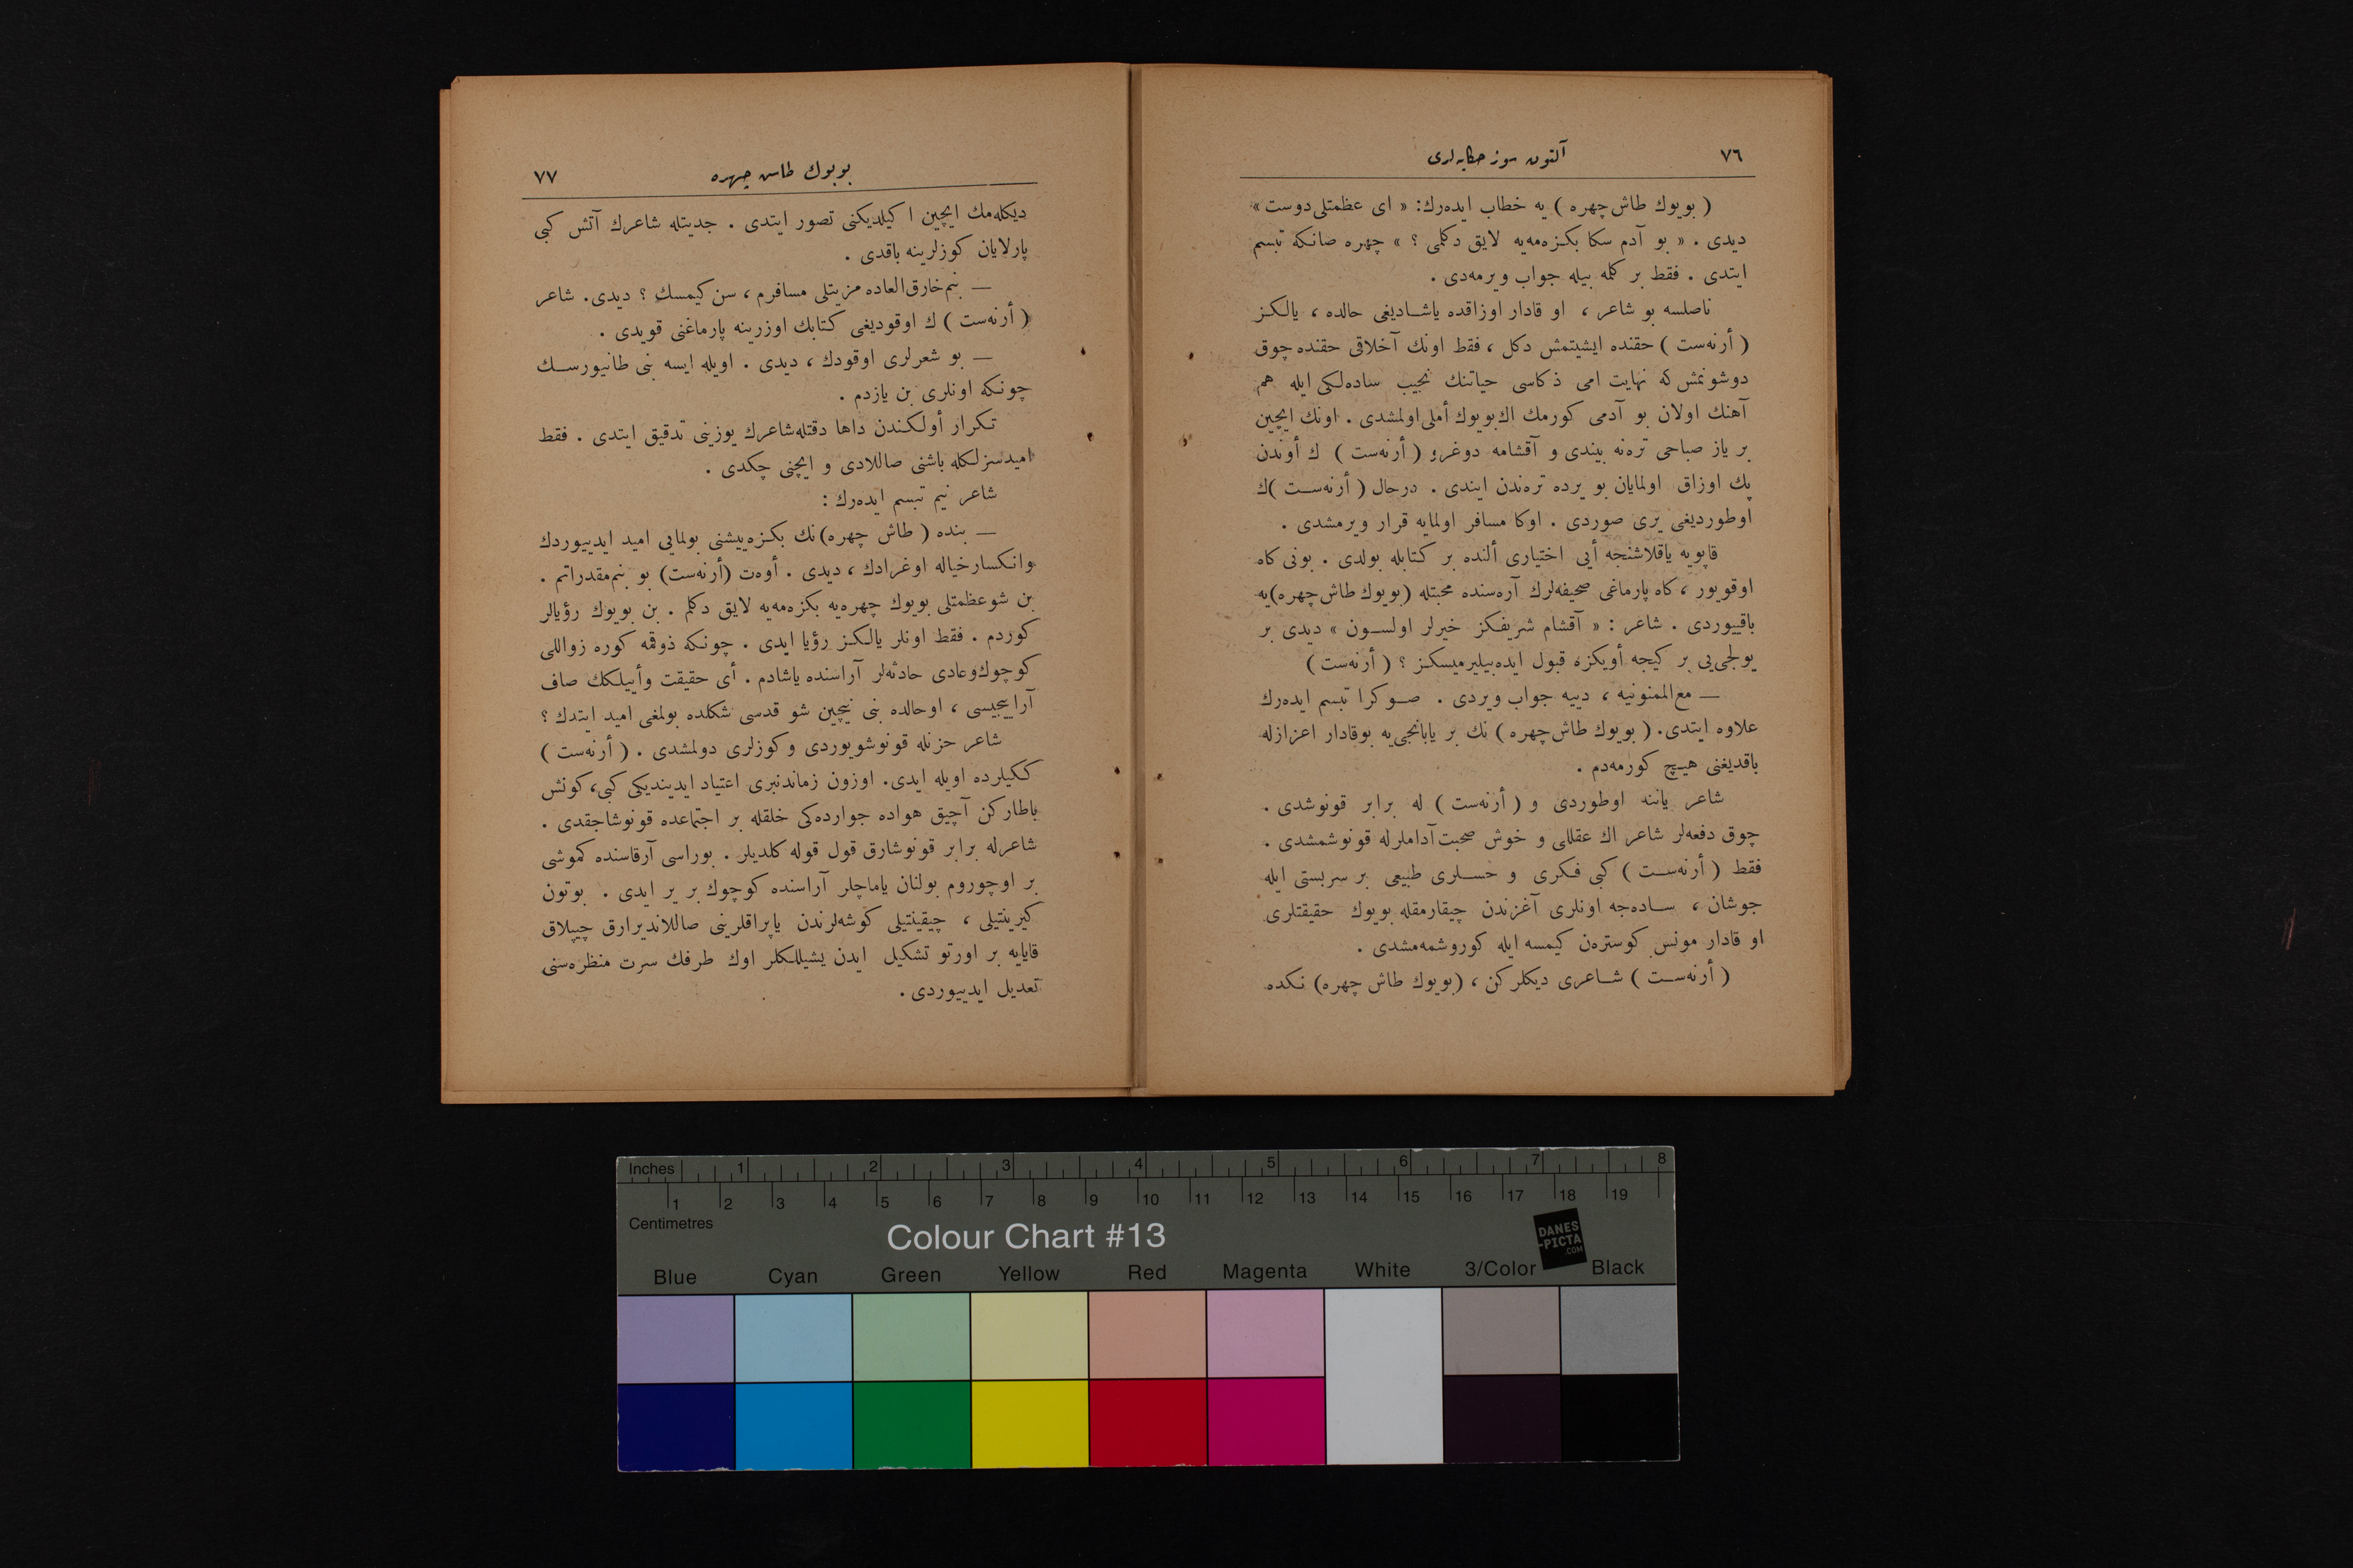 ٧٦
آلتون سوز حكايه‌لرى
( بويوك طاش چهره ) يه خطاب ايده‌رك: « اى عظمتلى دوست »
ديدى . « بو آدم سكا بكـزه‌مه‌يه لايق دكلمى ؟ » چهره صانكه تبسم
ايتدى . فقط بر كلمه بيله جواب ويرمه‌دى .
ناصلسه بو شاعر ، او قادار اوزاقده ياشـاديغى حالده ، يالكـز
( أرنه‌ست ) حقنده ايشيتمش دكل ، فقط اونك آخلاقى حقنده چوق
دوشونمش كه نهايت امى ذكاسى حياتنك نجيب ساده‌لكى ايله هم
آهنك اولان بو آدمى كورمك اك بويوك أملى اولمشدى . اونك ايچين
بر ياز صباحى ترەنه بيندى و آقشامه دوغرو ( أرنه‌ست ) ك أوندن
پك اوزاق اولمايان بو يرده ترەندن ايندى . درحال ( أرنه‌سـت )ك
اوطورديغى يرى صوردى . اوكا مسافر اولمايه قرار ويرمشدى .
قاپويه ياقلاشنجه أيى اختيارى ألنده بر كتابله بولدى . بونى كاه
اوقويور ، كاه پارماغى صحيفه‌لرك آره‌سنده محبتله (بويوك طاش چهره)يه
باقييوردى . شاعر : « آقشام شريفكز خيرلر اولسـون » ديدى بر
يولجى‌يى بر كيجه أويكزه قبول ايده‌بيليرميسكـز ؟ ( أرنه‌ست )
— مع‌الممنونيه ، دييه جواب ويردى . صـوكرا تبسم ايده‌رك
علاوه ايتدى. ( بويوك طاش چهره ) نك بر يابانجى‌يه بوقادار اعزازله
باقديغنى هيـچ كورمه‌دم .
شاعر ياننه اوطوردى و ( أرنه‌ست ) له برابر قونوشدى .
چوق دفعه‌لر شاعر اك عقللى و خوش صحبت آداملرله قونوشمشدى .
فقط ( أرنه‌سـت ) كبى فكرى و حسـلرى طبيعى بر سربستى ايله
جوشان ، سـاده‌جه اونلرى آغزندن چيقارمقله بويوك حقيقتلرى
او قادار مونس كوستره‌ن كيمسه ايله كوروشمه‌مشدى .
( أرنه‌سـت ) شـاعرى ديكلركن ، (بويوك طاش چهره) نكده
بويوك طاش چهره
٧٧
ديكله‌مك ايچين ا كيلديكنى تصور ايتدى . جديتله شاعرك آتش كبى
پارلايان كوزلرينه باقدى .
— بنم خارق‌العاده مزيتلى مسافرم ، سن كيمسك ؟ ديدى. شاعر
( أرنه‌ست ) ك اوقوديغى كتابك اوزرينه پارماغنى قويدى .
— بو شعرلرى اوقودك ، ديدى . اويله ايسه بنى طانيورسـك
چونكه اونلرى بن يازدم .
تكرار أولكندن داها دقتله شاعرك يوزينى تدقيق ايتدى . فقط
اميدسزلكله باشنى صاللادى و ايچنى چكدى .
شاعر نيم تبسم ايده‌رك :
— بنده ( طاش چهره)نك بكـزه‌ييشنى بولمايى اميد ايدييوردك
وانكسارخياله اوغرادك ، ديدى . أوەت (أرنه‌ست) بو بنم‌مقدراتم .
بن شو عظمتلى بويوك چهره‌يه بكزه‌مه‌يه لايق دكلم . بن بويوك رؤيالر
كوردم . فقط اونلر يالكـز رؤيا ايدى . چونكه ذوقمه كوره زواللى
كوچوك وعادى حادثه‌لر آراسنده ياشادم . أى حقيقت وأييلكك صاف
آراييجيسى ، اوحالده بنى نيچين شو قدسى شكلده بولمغى اميد ايتدك ؟
شاعر حزنله قونوشويوردى و كوزلرى دولمشدى . ( أرنه‌ست )
ككيلرده اويله ايدى. اوزون زماندنبرى اعتياد ايدينديكى كبى، كونش
باطاركن آچيق هواده جوارده‌كى خلقله بر اجتماعده قونوشاجقدى .
شاعرله برابر قونوشارق قول قوله كلديلر . بوراسى آرقاسنده كموشى
بر اوچوروم بولنان ياماچلر آراسنده كوچوك بر ير ايدى . بوتون
كيرينتيلى ، چيقينتيلى كوشه‌لرندن ياپراقلرينى صاللانديرارق چيپلاق
قايايه بر اورتو تشكيل ايدن يشيللكلر اوك طرفك سرت منظره‌سنى
تعديل ايدييوردى .
Inches 1 2 3 4 5 6 7 8
1 2 3 4 5 6 7 8 9 10 11 12 13 14 15 16 17 18 19
Centimetres
Colour Chart #13
DANES
-PICTA
.COM
Blue Cyan Green Yellow Red Magenta White 3/Color Black